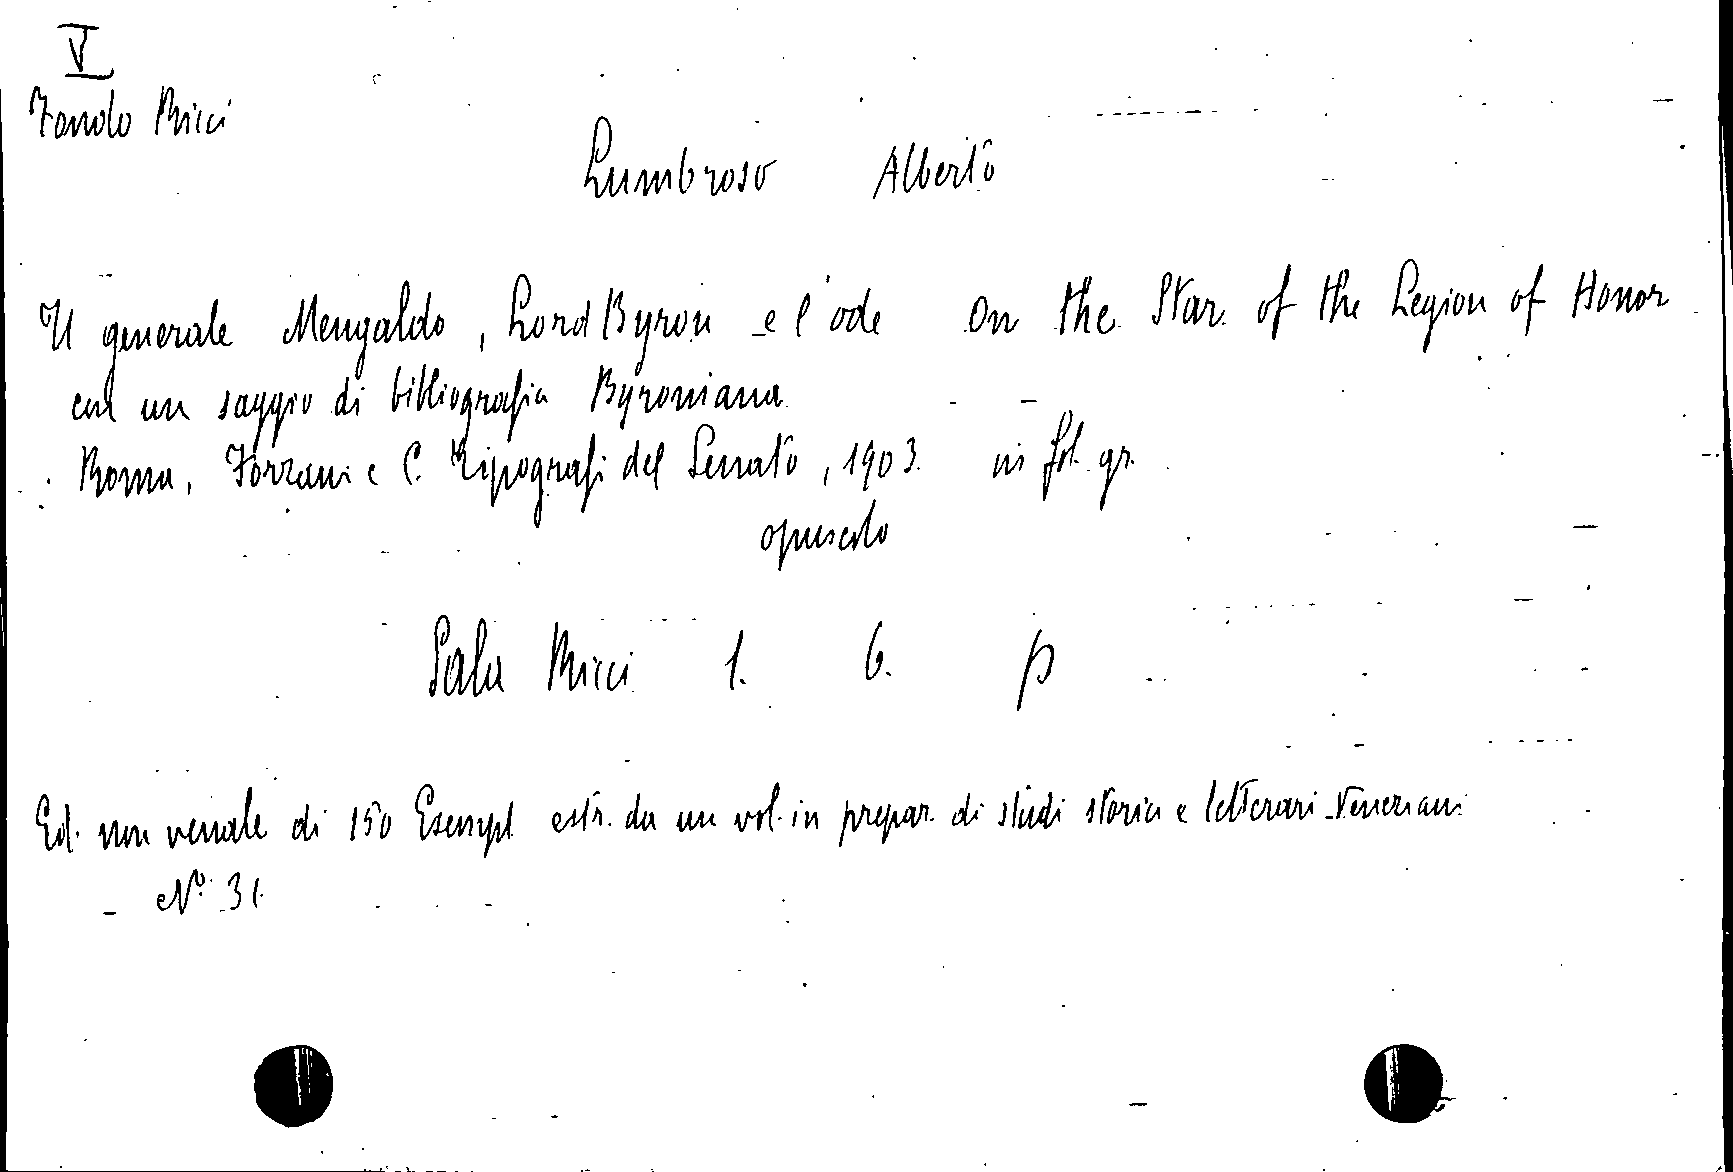 V
Fondo Ricci
Lumbroso Alberto
Il generale Mengaldo, Lord Byron e l'ode On the Star of the Legion of Honor
con un saggio di bibliografia Byroniana
Roma, Forzani e C. Tipografi del Senato, 1903. in fol. gr.
opuscolo
Sala Ricci 1. 6. β
Ed. non venale di 150 Esempl estr. da un vol. in prepar. di studi storici e letterari Veneziani
N° 31.